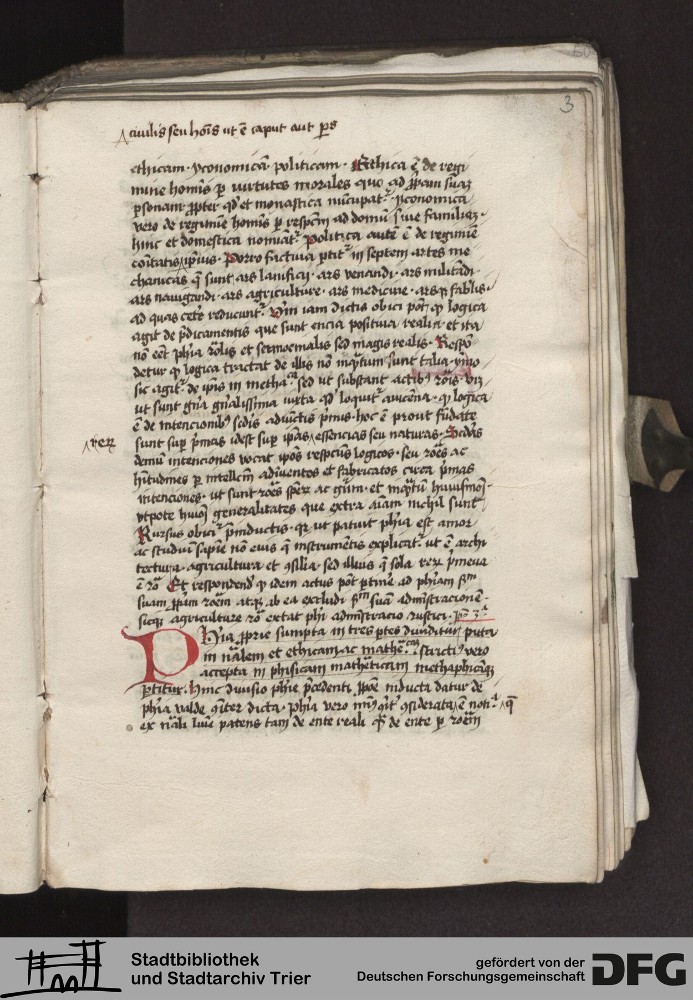 3
civilis seu hoīs ut ē caput aut ps
ethicam yconomicā politicam Ethica ē de regi
mine homīs p virtutes morales quo ad
psonam ppter qd et monastica nūcupatʳ yconomica
vero de regimīe homīs p respcm ad domū sive familiaȝ
hinc et domestica nomīatʳ politica autē ē de regimīe
cōitatis ipius Porro factiva ptitʳ in septem artes me
chanicas q̄ sunt ars lanificij ars venandi ars militādi
ars navigandi ars agriculture ars medicine arsqȝ fabrilis
ad quas cetʳe reducuntʳ Dim iam dictis obici pōt qȝ logica
agit de pdicamentis que sunt encia positiva realia et ita
nō eēt phīa rōlis et sermocinalis sed magis realis Respō
detur qȝ logica tractat de illis nō inqtum sunt talia ymo
sic agitʳ de ipīs in methaᵃ sed ut substant actibȝ rōis
ut sunt gn̄a gn̄alissima iuxta qd loquitʳ avicēna qȝ logica
ē de intencionibȝ scdīs adiūctis pmis hoc ē prout fūdate
rerȝ
sunt supʳ pmas idest supʳ ipās essencias seu naturas Scdās
demū intenciones vocat ipōs respctus logicos seu rōes ac
hītudines p intellcm adīventos et fabricatos circa pmas
intenciones ut sunt rōes spērȝ ac gn̄um et inqtū huiusmoī
utpote huiōī generalitates que extra aīam nichil sunt
Rursus obicʳ pinductis qr ut patuit phīa est amor
ac studiū sapīe nō cuius q̄ instrumētis explicatʳ ut ē archi
tectura agricultura et cʳsilia sed illius q̄ sola rerȝ pmeva
ē rō Et respondendᵐ qȝ idem actus pōt ptinēe ad phīam sᵐ
suam ppiam rōem atqȝ ab ea excludi sᵐ suā administracionē
sicqȝ agriculture rō extat phi administracio rustici
Phīa pprie sumpta in tres ptes dividitur puta
in nālem et ethicam ac matheᶜᵃᵐ stricti vero
accepta in phisicam mathēticam methaphicāqȝ
ptitur hinc divisio phīe pcedenti inducta datur de
phīa valde cōiter dicta phīa vero cʳsiderata ē notiᵃ q̄
ex nāli luīe patens tam de ente reali qᵃ de ente p rōem
Stadtbibliothek
und Stadtarchiv Trier
gefördert von der
Deutschen Forschungsgemeinschaft
DFG